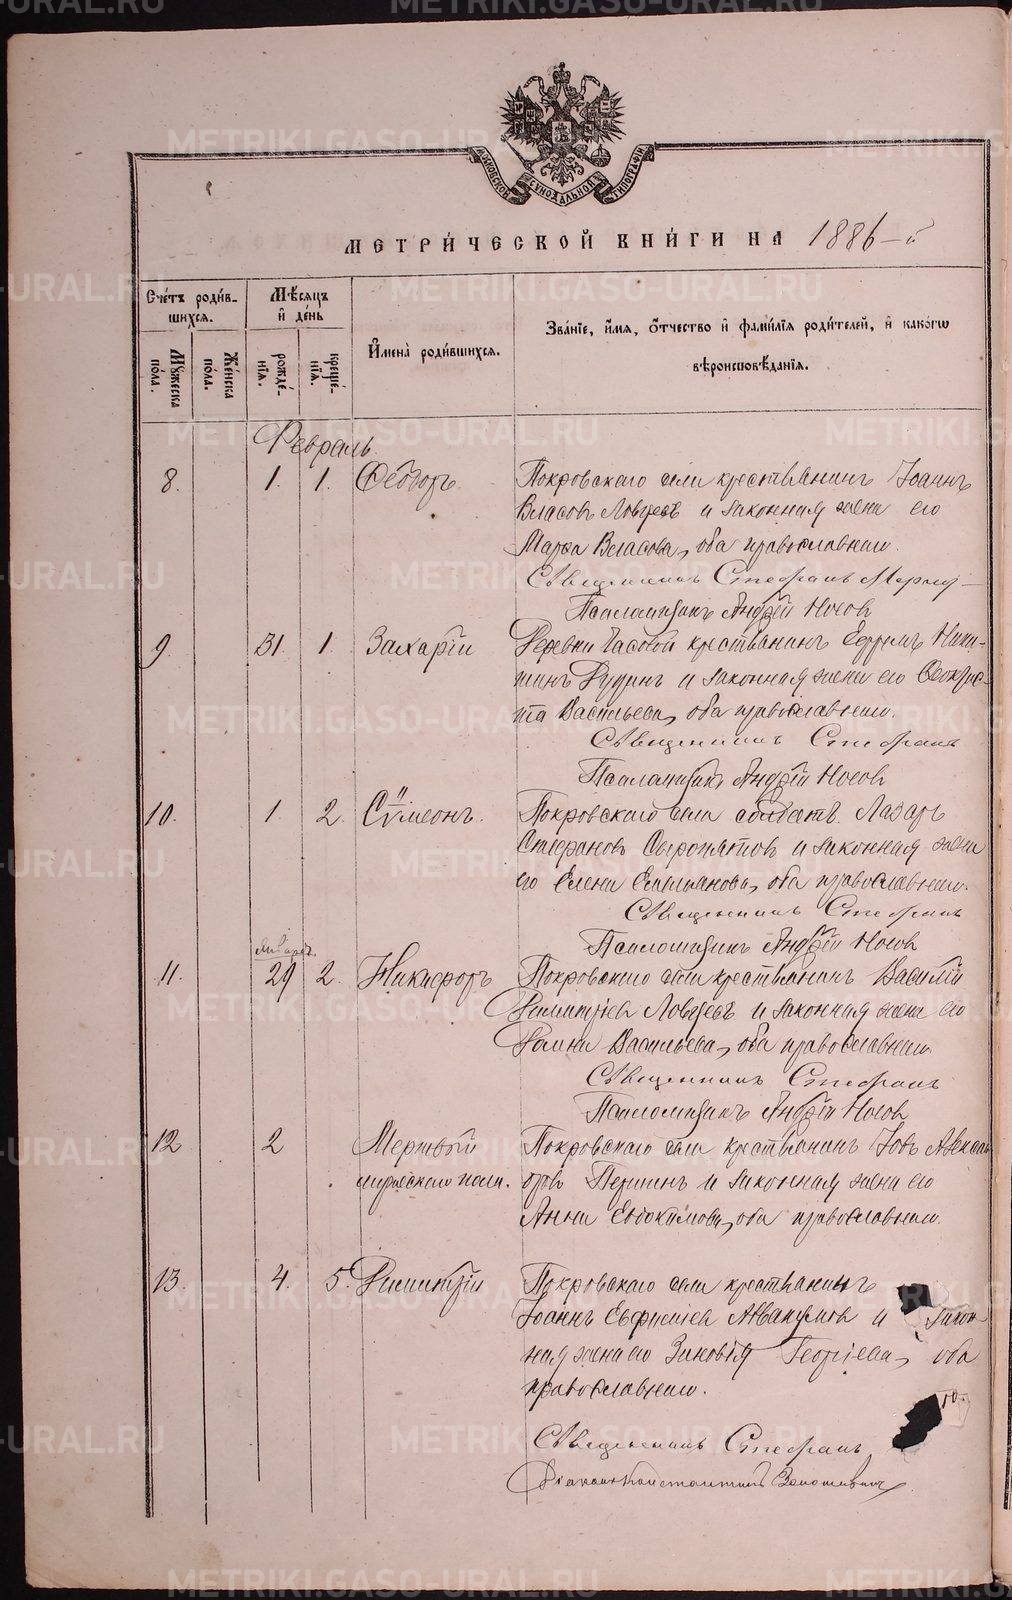 METRIKI.GASO-URAL.RU
МОСКОВСКОЙ СѴНОДАЛЬНОЙ ТИПОГРАФІИ
МЕТРИ́ЧЕСКОЙ КНИ́ГИ НА 1886-й
Сче́тъ роди́вшихся.
Мꙋжеска по́ла.
Же́нска по́ла.
Мѣ́сяцъ и҆ де́нь
рожде́нїя.
креще́нїя.
И҆мена̀ роди́вшихся.
Зва́нїе, и҆́мя, ѻ҆́тчество и҆ фами́лїя роди́телей, и҆ како́гѡ
вѣроисповѣ́данїя.
Февраль.
8. 1. 1. Ѳеодоръ. Покровскаго села крестьянинъ Іоаннъ
Власовъ Ловцевъ и законная жена его
Марѳа Власова, оба православные.
Священникъ Стефанъ
Псаломщикъ Андрей Носовъ
9. 31. 1. Захарій Деревни Часовой крестьянинъ Ефремъ Ники-
тинъ и законная жена его Ѳеоктис-
та Васильева, оба православные.
Священникъ Стефанъ
Псаломщикъ Андрей Носовъ
10. 1. 2. Сѵмеонъ. Покровскаго села солдатъ Лазарь
Стефановъ Сыропятовъ и законная жена
его Елена Емельянова, оба православные.
Священникъ Стефанъ
Псаломщикъ Андрей Носовъ
Январь.
11. 29 2. Никифоръ Покровскаго села крестьянинъ Василій
Димитріевъ Ловцевъ и законная жена его
Васильева, оба православные.
Священникъ Стефанъ
Псаломщикъ Андрей Носовъ
12 2 Мертвый Покровскаго села крестьянинъ Іовъ Алексан-
мужескаго пола. дровъ Першинъ и законная жена его
Анна Евдокимова, оба православные.
13. 4. 5. Димитрій Покровскаго села крестьянинъ
Іоаннъ Авакумовъ и закон-
ная жена его Зиновія Георгіева, оба
православные.
Священникъ Стефанъ
Діаконъ Константинъ